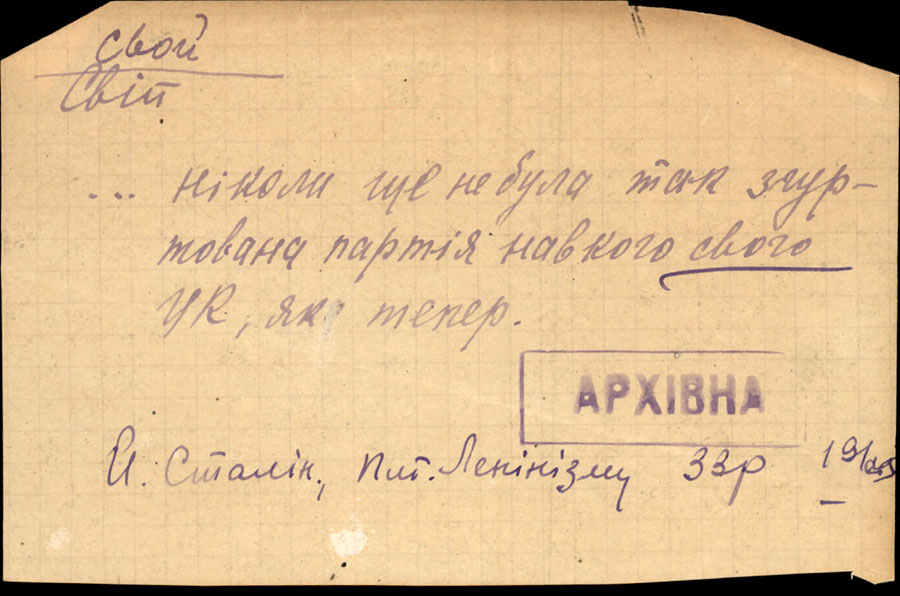 свой
Світ
... ніколи ще не була так згур-
тована партія навкого свого
ЦК, як тепер.
АРХІВНА
Й. Сталін, Пит. Ленінізму 33р